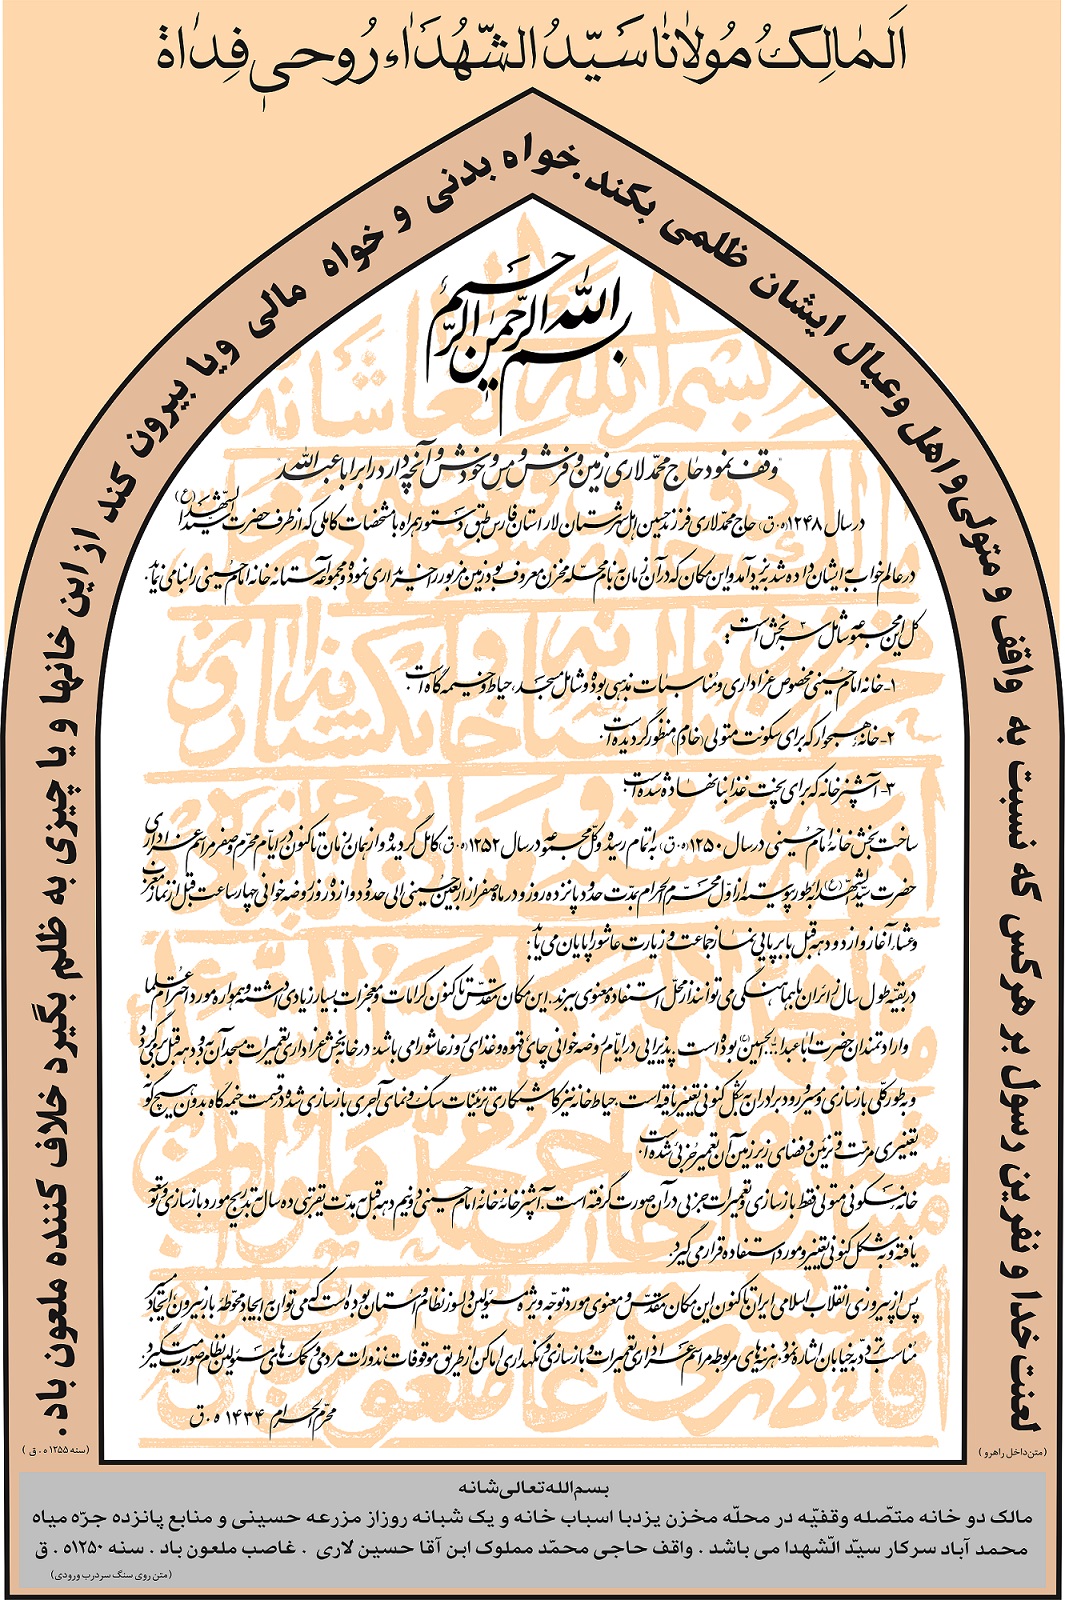 اَلمٰالِکُ مُولانٰا سَیّدُ الشّهُدٰاء رُوحی فِدٰاهُ
لعنت خدا و نفرین رسول بر هرکس که نسبت به واقف و متولی و اهل و عیال ایشان ظلمی بکند. خواه بدنی و خواه مالی و یا بیرون کند از این خانها و یا چیزی به ظلم بگیرد خلاف کننده ملعون باد.
(متن داخل راهرو)
(سنه ۱۲۵۵ ه . ق)
بسم الله الرحمن الرحیم
"وقف نمود حاج محمّد لاری زمین و فرش و مس و خودش و آنچه دارد را بر اباعبدالله"
در سال ۱۲۴۸ (ه.ق) حاج محمّد لاری فرزند حسین اهل شهرستان لار استان فارس طبق دستور همراه با مشخصات کاملی که از طرف حضرت سیدالشهدا (ع)
در عالم خواب به ایشان داده شد به یزد آمد و این مکان که در آن زمان به نام محله مخزن معروف بود زمین مزبور را خریداری نموده و مجموعه آستانه خانه امام حسینی را بنا می نماید.
کل این مجموعه شامل ۳ بخش است:
۱- خانه امام حسینی مخصوص عزاداری و مناسبات مذهبی بوده و شامل مسجد، حیاط و خیمه گاه است.
۲- خانه همجوار که برای سکونت متولی (خادم) منظور گردیده است.
۳- آشپزخانه که برای پخت غذا بنا نهاده شده است.
ساخت بخش خانه امام حسینی در سال ۱۲۵۰ (ه.ق) به اتمام رسیده و کل مجموعه در سال ۱۲۵۲ (ه.ق) کامل گردیده و از همان زمان تاکنون در ایام محرّم و صفر مراسم عزاداری
حضرت سیّدالشهدا (ع) به طور پیوسته از اول محرم الحرام بمدت حدود پانزده روز و در ماه صفر از اربعین حسینی الی حدود دوازده روز روضه خوانی چهار ساعت قبل از نماز مغرب
و عشاء آغاز و از دو دهه قبل با برپایی نماز جماعت و زیارت عاشورا پایان می یابد.
در بقیه طول سال زائران با هماهنگی می توانند از محل استفاده معنوی ببرند. این مکان مقدّس تاکنون کرامات و معجزات بسیار زیادی داشته و همواره مورد احترام علما
و ارادتمندان حضرت اباعبدا... الحسین (ع) بوده است. پذیرایی در ایام روضه خوانی چای قهوه و غذای روز عاشورا می باشد. در خانه بخش عزاداری تعمیرات مسجد آن به دو دهه قبل برمی گردد
و به طور کلّی بازسازی و مسیر ورود برادران به شکل کنونی تغییر یافته است. حیاط خانه نیز کاشیکاری تزئینات سنگ و نمای آجری بازسازی شد و در قسمت خیمه گاه بدون هیچ گونه
تغییری مرمت و تزئین و فضای زیرزمین آن تعمیر جزئی شده است.
خانه مسکونی متولی فقط بازسازی و تعمیرات جزیی در آن صورت گرفته است. آشپزخانه خانه امام حسینی دو نیم دهه قبل به مدت تقریبی ده سال به تدریج مورد بازسازی و توسعه
یافته و به شکل کنونی تغییر و مورد استفاده قرار می گیرد.
پس از پیروزی انقلاب اسلامی ایران تاکنون این مکان مقدّس و معنوی مورد توجه ویژه مسئولین دلسوز نظام و استان بوده است که می توان به ایجاد محوطه باز بیرون، ایجاد مسیر
مناسب تردد به خیابان اشاره نمود. هزینه های مربوطه مراسم عزاداری تعمیرات و بازسازی و نگهداری اماکن از طریق موقوفات نذورات مردمی و کمک های مسئولین نظام صورت میگیرد.
محرّم الحرام ۱۴۳۴ ه.ق
بسم الله تعالی شانه
مالک دو خانه متصّله وقفیّه در محلّه مخزن یزد با اسباب خانه و یک شبانه روز از مزرعه حسینی و منابع پانزده جرّه میاه
محمد آباد سرکار سیّد الشّهدا می باشد . واقف حاجی محمّد مملوک ابن آقا حسین لاری . غاصب ملعون باد . سنه ۱۲۵۰ه . ق
(متن روی سنگ سردرب ورودی)